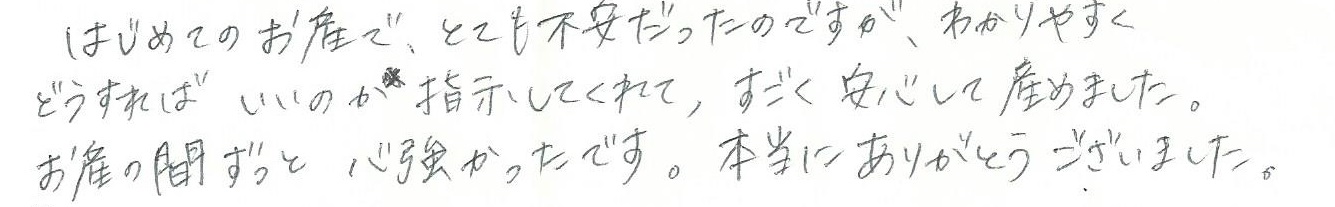 はじめてのお産で、とても不安だったのですが、わかりやすく
どうすればいいのか指示してくれて、すごく安心して産めました。
お産の間ずっと心強かったです。本当にありがとうございました。